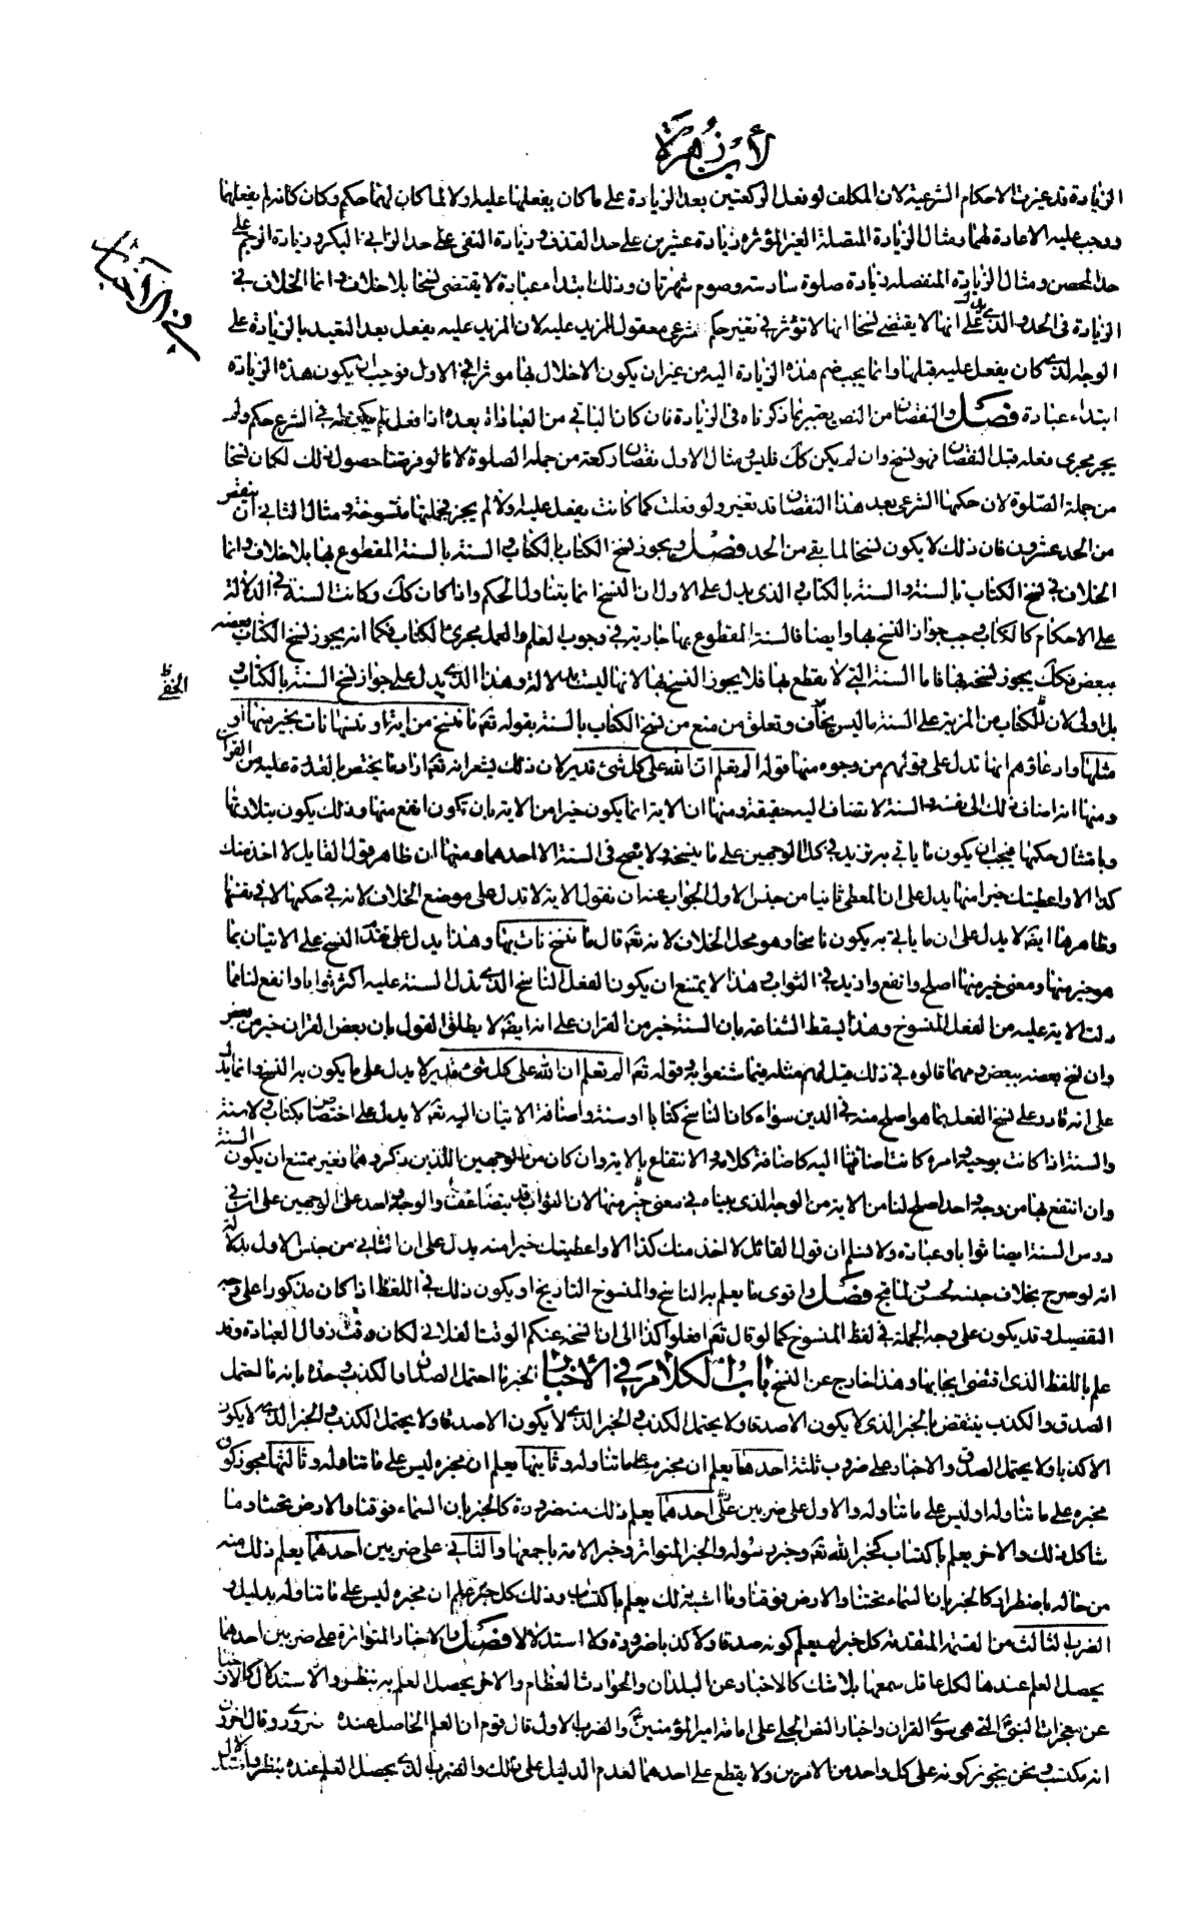 لابن زهرة
في الأخبار
الزيادة قد غيرت الاحكام الشرعية لان المكلف لو فعل الركعتين بعد الزيادة على ما كان يفعلهما عليه اولا لما كان لهما حكم وكان كانه لم يفعلهما
ووجب عليه الاعادة لهما ومثال الزيادة المتصلة الغير المؤثرة زيادة عشرين على حد القذف وزيادة النفى على حد الزانى البكر وزيادة الرجم على
حد المحصن ومثال الزيادة المنفصلة زيادة صلوة سادسة وصوم شهر ثان وذلك ابتداء عبادة لا يقتضى نسخا بلا خلاف وانما الخلاف في
الزيادة فى الحد والذى يدل على انها لا يقتضى نسخا انها لا تؤثر في تغير حكم شرعى معقول للمزيد عليه لان المزيد عليه يفعل بعد التعبد بالزيادة على
الوجه الذى كان يفعل عليه قبلها وانما يجب ضم هذه الزيادة اليه من غير ان يكون الاخلال بها مؤثرا في الاول فوجب ان يكون هذه الزيادة
ابتداء عبادة فصل والنقصان من النص يعتبر بما ذكرناه فى الزيادة فان كان الباقي من العبادة بعده اذا فعل لم يكن له في الشرع حكم ولم
يجر مجرى فعله قبل النقصان فهو نسخ وان لم يكن كك فليس مثال الاول نقصان ركعة من جملة الصلوة لانا لو فرضنا حصول ذلك لكان نسخا
من جملة الصلوة لان حكمها الشرعى بعد هذا النقصان قد تغير ولو فعلت كما كانت يفعل عليه اولا لم يجز فجملتها منسوخة ومثال الثانى ان ينقص
من الحد عشرون فان ذلك لا يكون نسخا لما بقي من الحد فصل ويجوز نسخ الكتاب بالكتاب والسنة بالسنة المقطوع بها بلا خلاف وانما
الخلاف في نسخ الكتاب بالسنة والسنة بالكتاب والذى يدل على الاول ان النسخ انما يتناول الحكم واذا كان كك وكانت السنة في الدلالة
على الاحكام كالكتاب وجب جواز النسخ بها وايضا فالسنة المقطوع بها جارية في وجوب العلم والعمل مجرى الكتاب فكما انه يجوز نسخ الكتاب بعضه
ببعض فكك يجوز نسخه بها فاما السنة التى لا يقطع بها فلا يجوز النسخ بها لانها ليست بدلالة وهذا الذى يدل على جواز نسخ السنة بالكتاب و
بل اولى لان للكتاب من المزية على السنة ما ليس بخاف وتعلق من منع من نسخ الكتاب بالسنة بقوله تعه ما ننسخ من آية او ننسها نات بخير منها او
مثلها وادعاؤهم انها تدل على قولهم من وجوه منها قوله الم تعلم ان الله على كل شئ قدير لان ذلك يشعر انه تعه اراد ما يختص بالقدرة عليه من القرآن
ومنها انه اضاف ذلك الى نفسه والسنة لا تضاف اليه حقيقة ومنها ان الاية انما يكون خيرا من الاية بان تكون انفع منها وذلك يكون بتلاوتها
وبامتثال حكمها فيجب ان يكون ما ياتي به يزيد في كلا الوجهين على ما ينسخه ولا يصح فى السنة الا احدهما ومنها ان ظاهر قول القايل لا اخذ منك
كذا الا واعطيتك خيرا منه يدل على ان المعطى ثانيا من جنس الاول الجواب عنه ان نقول الاية لا تدل على موضع الخلاف لانه في حكمها لا في نفسها
وظاهرها ايضه لا يدل على ان ما ياتي به يكون ناسخا وهو محل الخلاف لانه تعه قال ما ننسخ نات بها وهذا يدل على تقدم النسخ على الاتيان بما
هو خير منها ومعنى خير منها اصلح وانفع وازيد في الثواب وهذا لا يمتنع ان يكون الفعل الناسخ الذى تدل السنة عليه اكثر ثوابا وانفع لنا مما
دلت الاية عليه من الفعل المنسوخ وهذا يسقط الشناعة بان السنة خير من القرآن على انه ايضه لا يطلق القول بان بعض القرآن خير من بعض
وان نسخ بعضه ببعض ومهما قالوه في ذلك قيل لهم مثله فيما شنعوا به وقوله تعه الم تعلم ان الله على كل شئ قدير لا يدل على ما يكون به النسخ وانما يدل
على انه قادر على نسخ الفعل بما هو اصلح منه في الدين سواء كان الناسخ كتابا او سنة واضافة الاتيان اليه تعه لا يدل على اختصاص بكتاب ولا سنة
والسنة اذا كانت بوحيه وامره كانت اضافتها اليه كاضافة كلامه والانتفاع بالاية وان كان من الوجهين اللذين ذكروهما فغير ممتنع ان يكون السنة
وان انتفع بها من وجه واحد اصلح لنا من الاية من الوجه الذى بيناه في معنى خير منها لان الثواب قد يتضاعف والوجه واحد على الوجهين على ان في
درس السنة ايضا ثوابا وعبادة ولا نسلم ان قول القائل لا اخذ منك كذا الا واعطيتك خيرا منه يدل على ان الثانى من جنس الاول بدلالة
انه لو صرح بخلاف جنسه لحسن ولما قبح فصل واقوى ما يعلم به الناسخ والمنسوخ التاريخ او يكون ذلك في اللفظ اذا كان مذكورا على وجه
التفصيل وقد يكون على وجه الجملة في لفظ المنسوخ كما لو قال تعه افعلوا كذا الى ان انسخه عنكم الوقت الفلانى لكان وقت زوال العبادة وقد
علم باللفظ الذى اقتضى ايجابها وهذا خارج عن النسخ باب الكلام في الأخبار الخبر ما احتمل الصدق او الكذب وحده بانه ما احتمل
الصدق والكذب ينتقض بالخبر الذى لا يكون الا صدقا ولا يحتمل الكذب والخبر الذى لا يكون
الا كذبا ولا يحتمل الصدق والاخبار على ضروب ثلثة احدها يعلم ان مخبره على ما تناوله وثانيها يعلم ان مخبره ليس على ما تناوله وثالثها يجوز كون
مخبره على ما تناوله او ليس على ما تناوله والاول على ضربين احدهما يعلم ذلك منه ضرورة كالخبر بان السماء فوقنا والارض تحتنا وما
شاكل ذلك والاخر يعلم باكتساب كخبر الله تعه وخبر رسوله والخبر المتواتر وخبر الامة باجمعها والثانى على ضربين احدهما يعلم ذلك منه
من حاله باضطرار كالخبر بان السماء تحتنا والارض فوقنا وما اشبه ذلك يعلم باكتساب وذلك كل خبر علم ان مخبره ليس على ما تناوله بدليل و
الضرب الثالث من القسمة المتقدمة كل خبر لم يعلم كونه صدقا ولا كذبا ضرورة ولا استدلالا فصل والاخبار المتواترة على ضربين احدهما
يحصل العلم عندها لكل عاقل سمعها بلا شك كالاخبار عن البلدان والحوادث العظام والاخر يحصل العلم به بنظر والاستدلال كالاخبار
عن معجزات النبى التى هى سوى القرآن واخبار النص الجلى على امامة امير المؤمنين والضرب الاول قال قوم ان العلم الحاصل عنده ضرورى وقال اخرون
انه مكتسب ونحن نجوز كونه على كل واحد من الامرين ولا يقطع على احدهما لعدم الدليل على ذلك والضرب الذى يحصل العلم عنده بنظر واستدلال